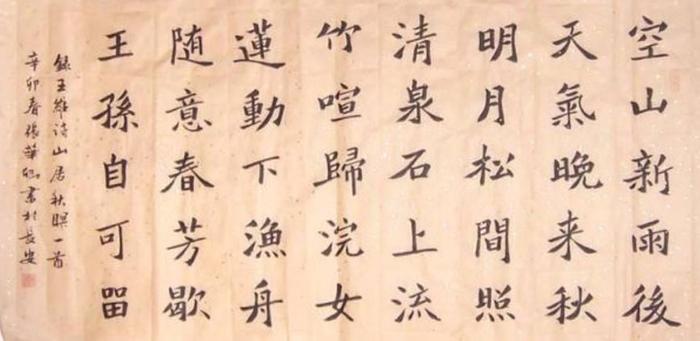 空山新雨後
天氣晚来秋
明月松間照
清泉石上流
竹喧歸浣女
蓮動下漁舟
随意春芳歇
王孫自可留
錄王維诗山居秋暝一首
辛卯春張華書於長安